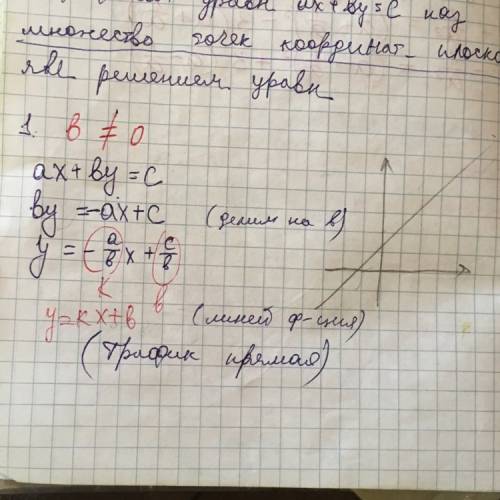 уравн ax+by=c наз
множество точек координат. плоско
явл решением уравн
1. в ≠ 0
ax+by=c
by=-ax+c (делим на в)
y = -a/b x + c/b
к в
y=кx+в (линей ф-ция)
(График прямая)